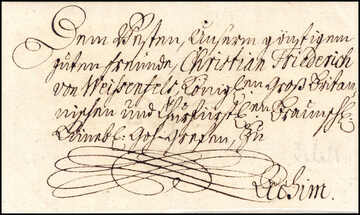 Dem Vesten, Unserm günstigen
guten freunde, Christian Friederich
von Weissenfels, Königl.en Groß Britan,
nischen und Churfürstl.en Braunschw.
Lünebl: zu
Achim.